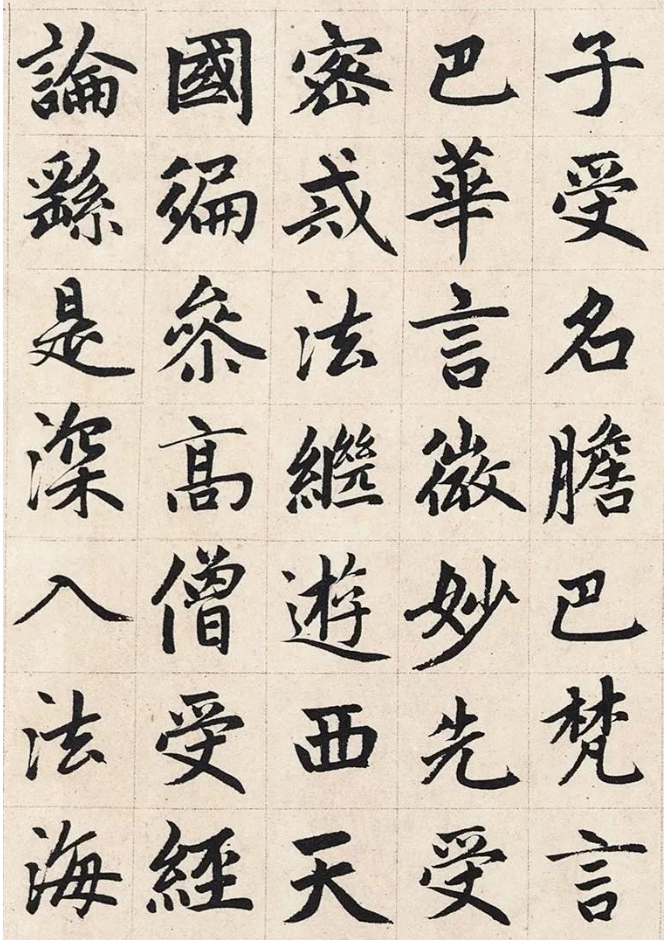 子受名膽巴梵言
巴華言微妙先受
密戒法繼遊西天
國徧參高僧受經
論繇是深入法海